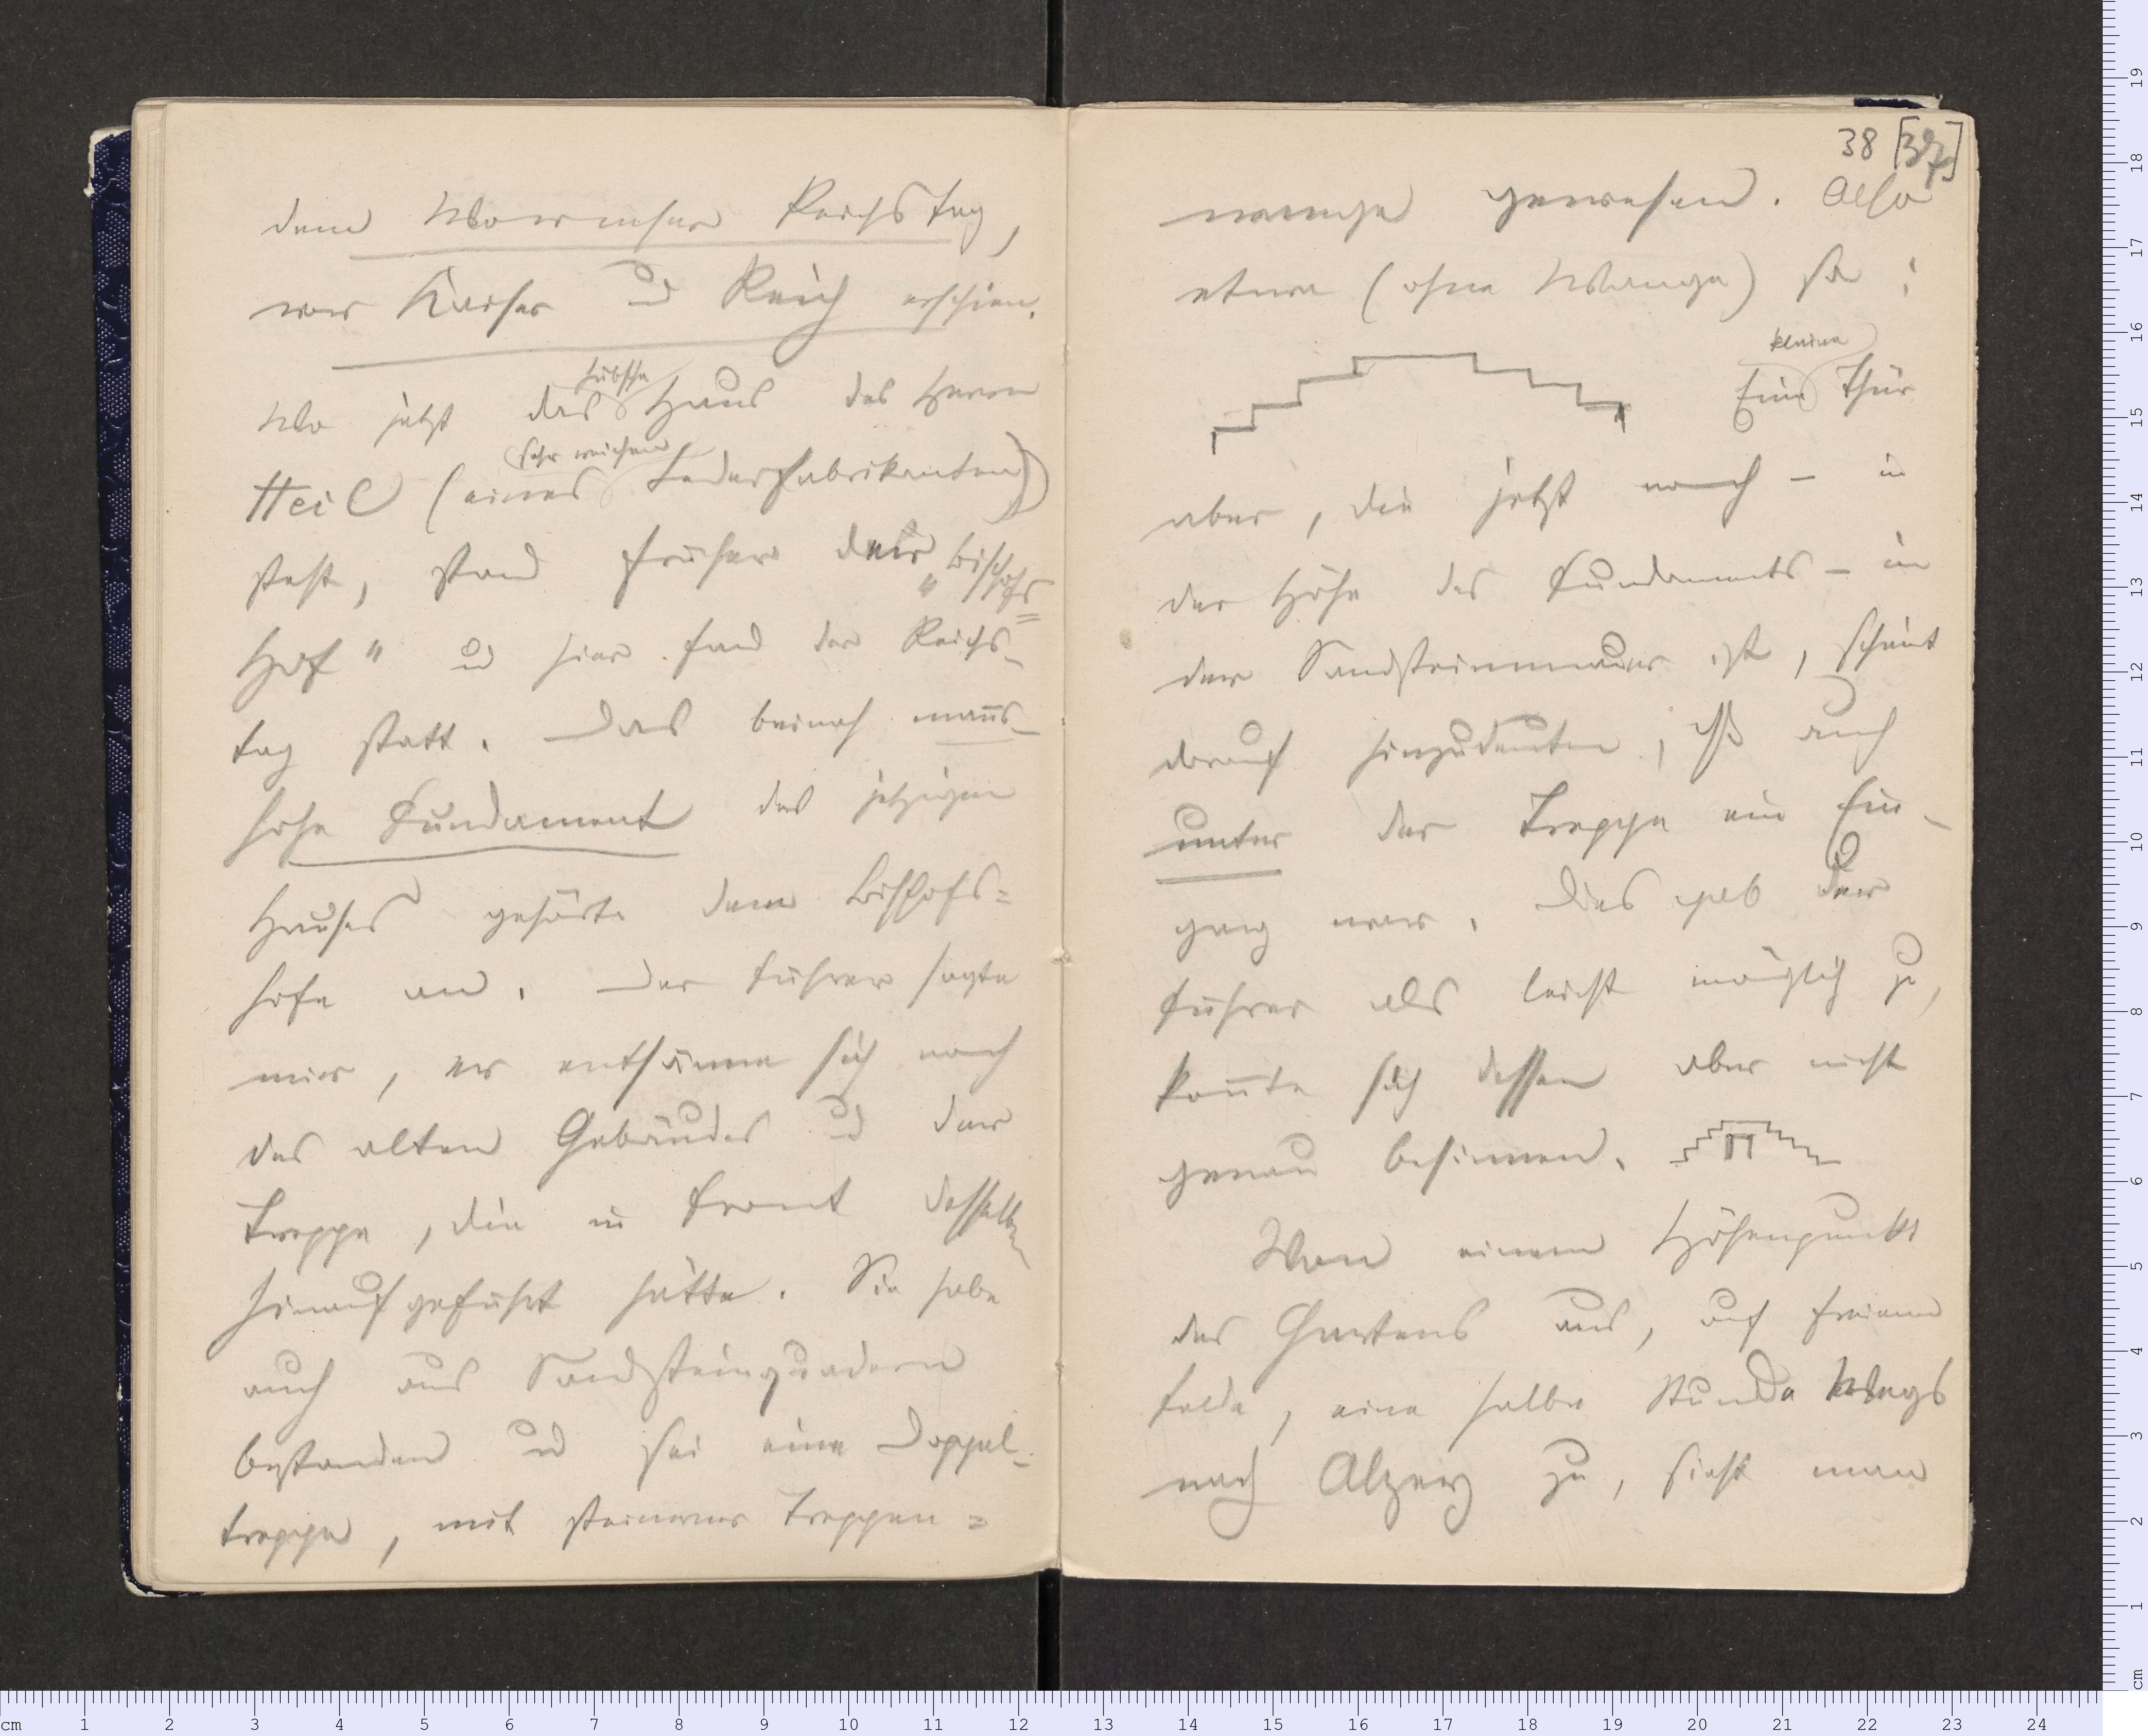 dem Wormser Reichstag,
vor Kaiser und Reich erschien.
hübsche
Wo jetzt das Haus des Herrn
sehr reichen
Heil (eines Lederfabrikanten)
steht, stand früher der „Bischofs=
Hof“ und hier fand der Reichs-
tag statt. Das beinah manns-
hohe Fundament des jetzigen
Hauses gehörte dem Bischofs=
hofe an. Der Führer sagte
mir, er entsänne sich noch
des alten Gebäudes und der
Treppe, die in Front desselben
hinaufgeführt hätte. Sie habe
auch aus Sandsteinquadern
bestanden und sei eine Doppel-
treppe, mit steinerner Treppen=
38 [37]
wange gewesen. Also
etwa (ohne Wange) so:
kleine
Eine Thür
aber, die jetzt noch – in
der Höhe des Fundaments – in
der Sandsteinmauer ist, scheint
darauf hinzudeuten, daß auch
unter der Treppe ein Ein-
gang war. Dies gab der
Führer als leicht möglich zu,
konnte sich dessen aber nicht
genau besinnen.
Von einem Höhenpunkt
des Gartens aus, auf freiem
Felde, eine halbe Stunde Wegs
nach Alzey zu, sieht man